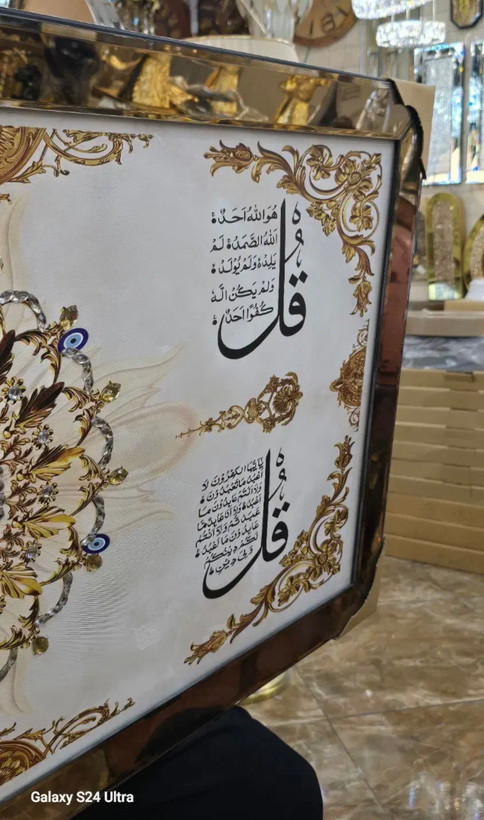 قُلْ
هُوَ اللهُ اَحَدٌ
اَللهُ الصَّمَدُ لَمْ
يَلِدْ وَلَمْ يُولَدْ
وَلَمْ يَكُنْ لَهُ
كُفُوًا اَحَدٌ
قُلْ
يَا اَيُّهَا الْكٰفِرُونَ لَا
اَعْبُدُ مَا تَعْبُدُونَ
وَلَا اَنْتُمْ عَابِدُونَ مَا
اَعْبُدُ وَلَا اَنَا عَابِدٌ مَا
عَبَدْتُمْ وَلَا اَنْتُمْ
عَابِدُونَ مَا اَعْبُدُ
لَكُمْ دِينُكُمْ
وَلِيَ دِينِ
Galaxy S24 Ultra